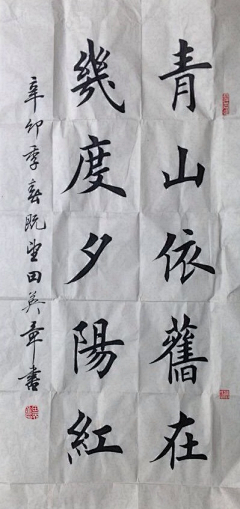 青山依舊在
幾度夕陽紅
辛卯季春既望田英章書